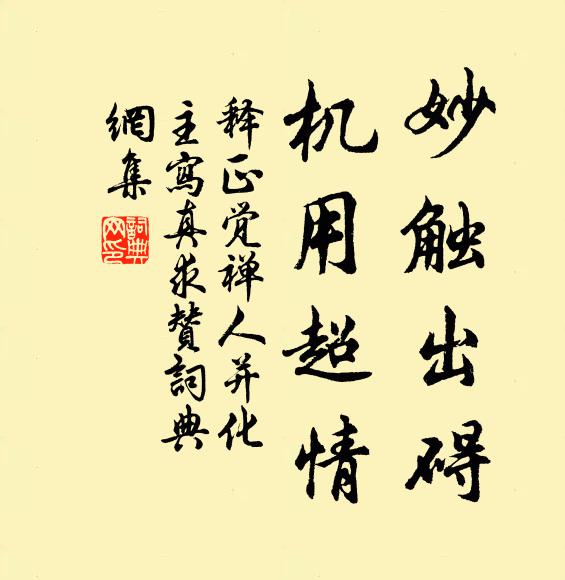 妙触出碍
机用超情
释正觉禅人并化
主寫真求贊詞典
網集
詞典
网印